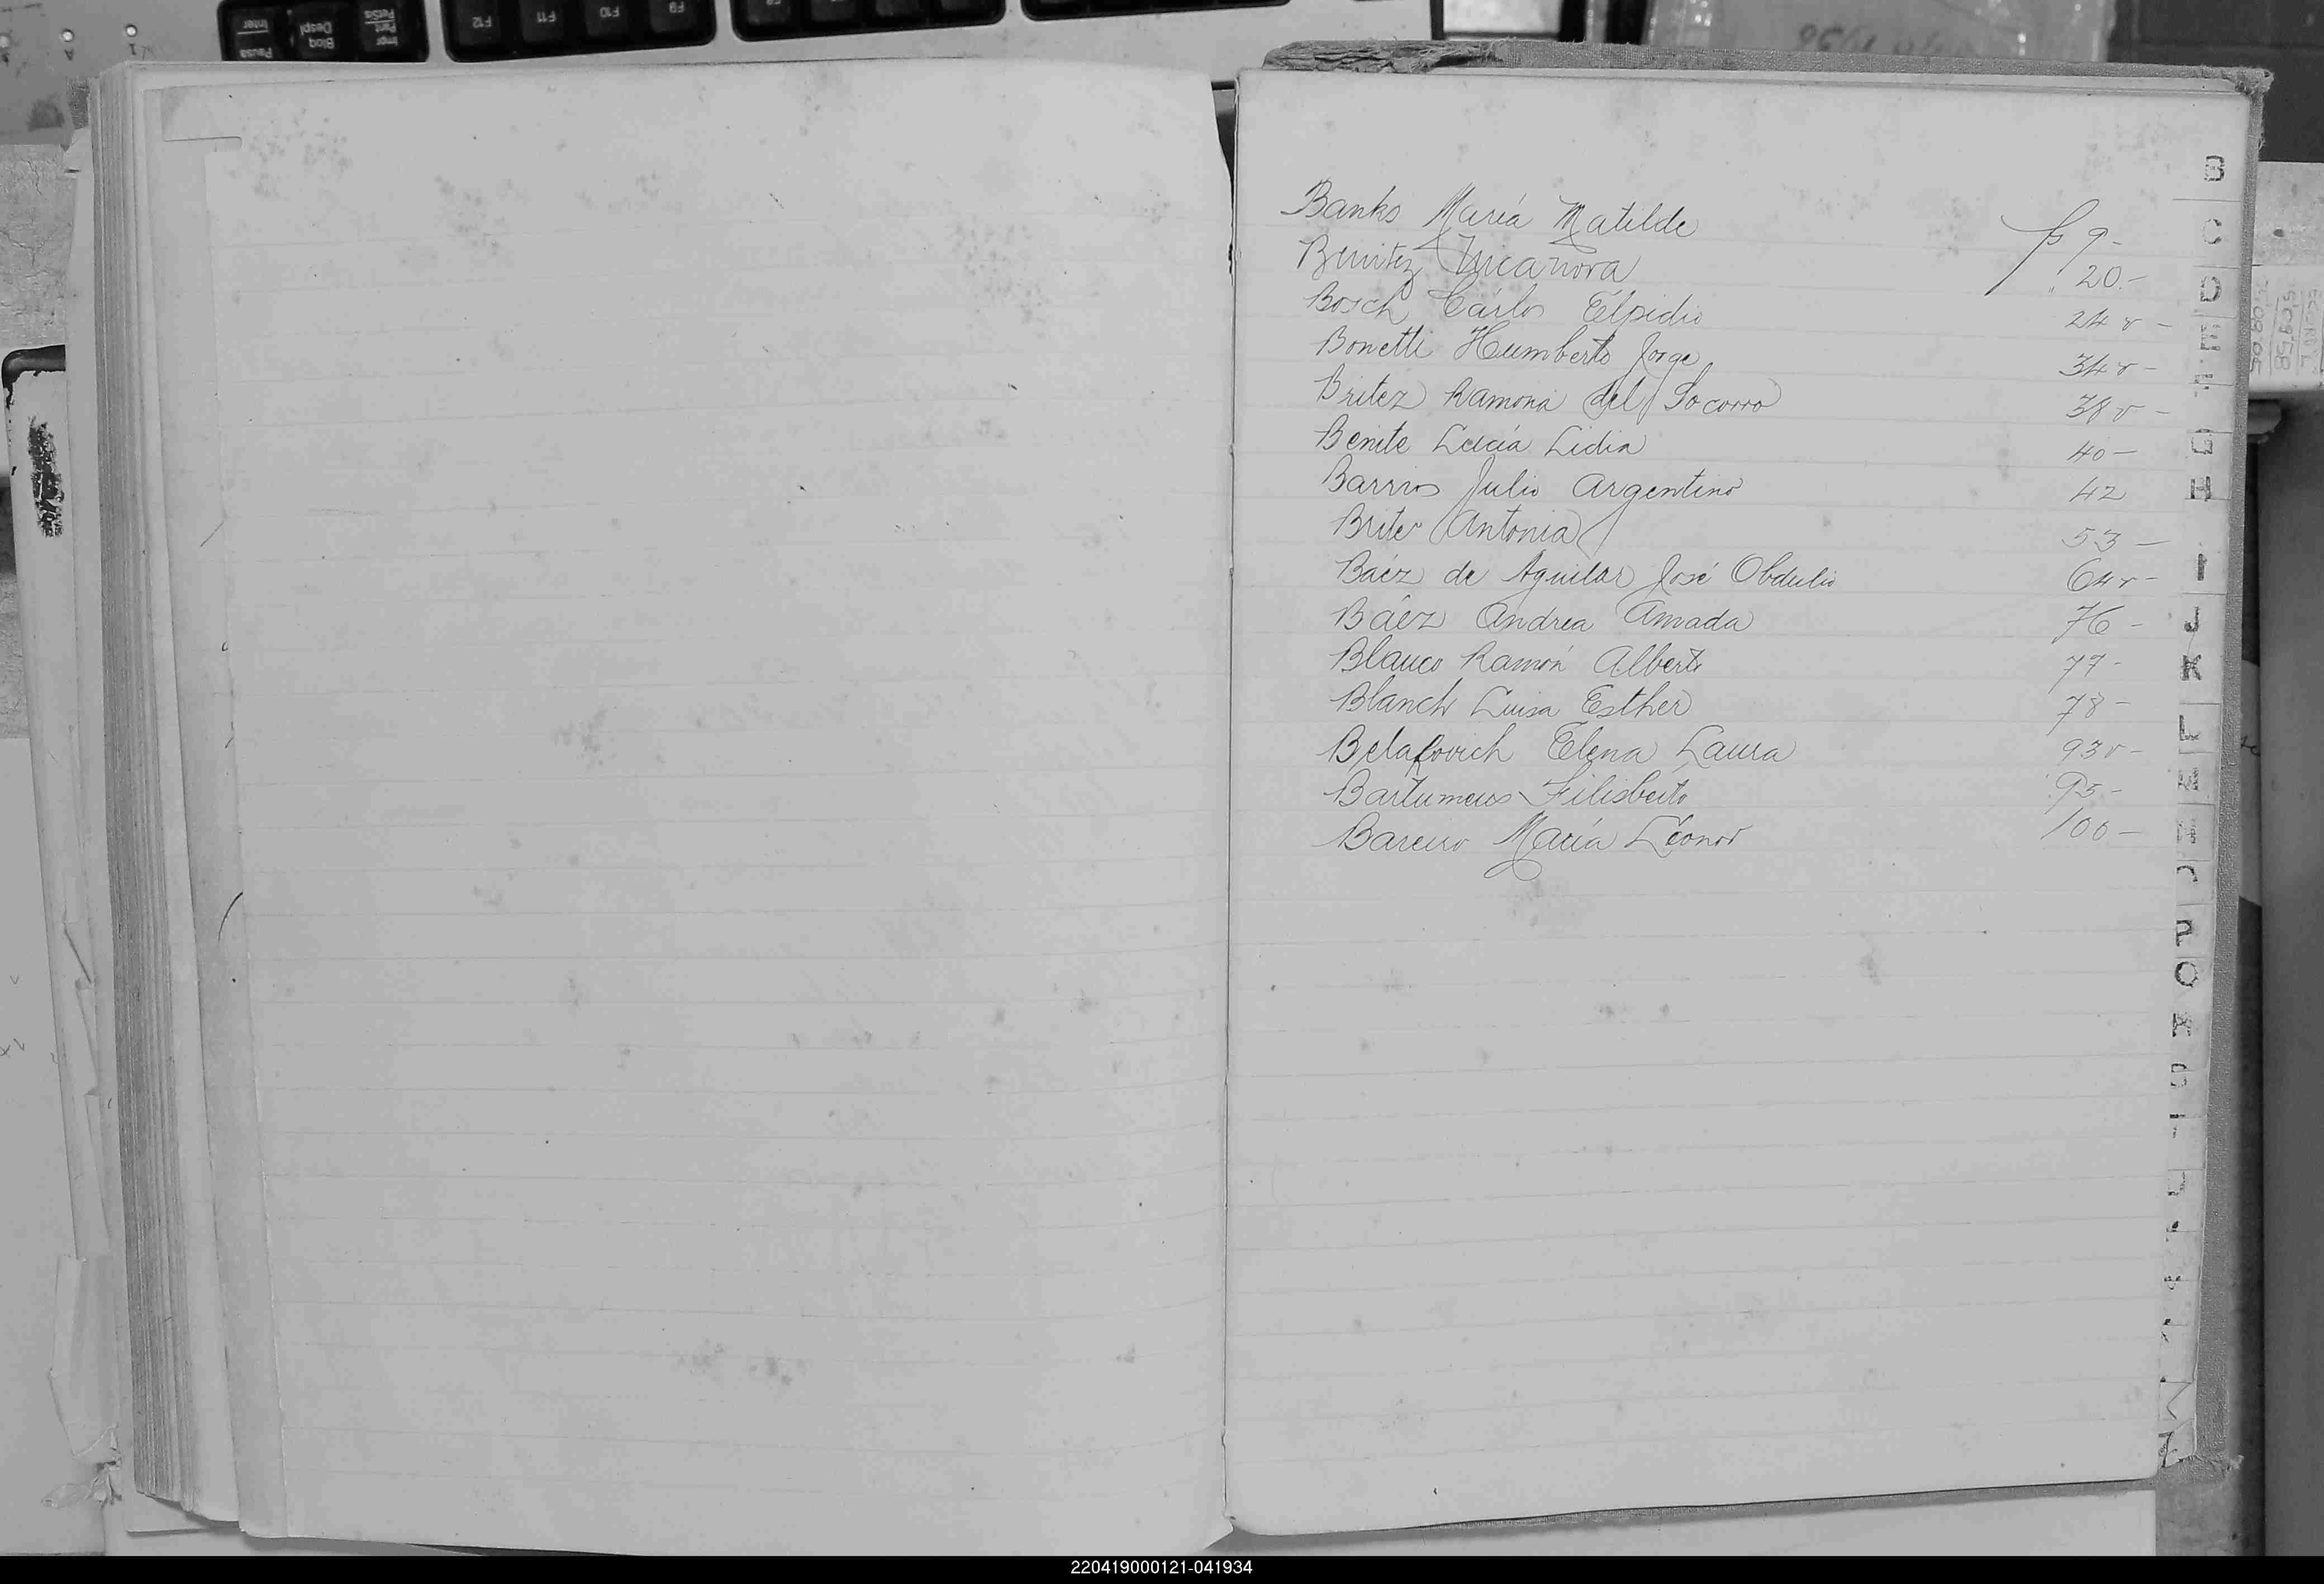 Banks María Matilde fs 9-
Benitez Nicanora 20.-
Bosch Carlos Elpidio 24 v -
Bonetti Humberto Jorge 34 v -
Britez Ramona del Socorro 38 v -
Benite Lucía Lidia 40 -
Barrios Julio Argentino 42
Brite Antonia 53 -
Báez de Aguilar José Obdulio 64 v -
Báez Andrea Amada 76 -
Blanco Ramón Alberto 77 -
Blanch Luisa Esther 78 -
Elena Laura 93 v -
Bartumeus Filisberto 95 -
Bareiro María Leonor 100 -
B
C
D
E
H
I
J
K
L
220419000121-041934